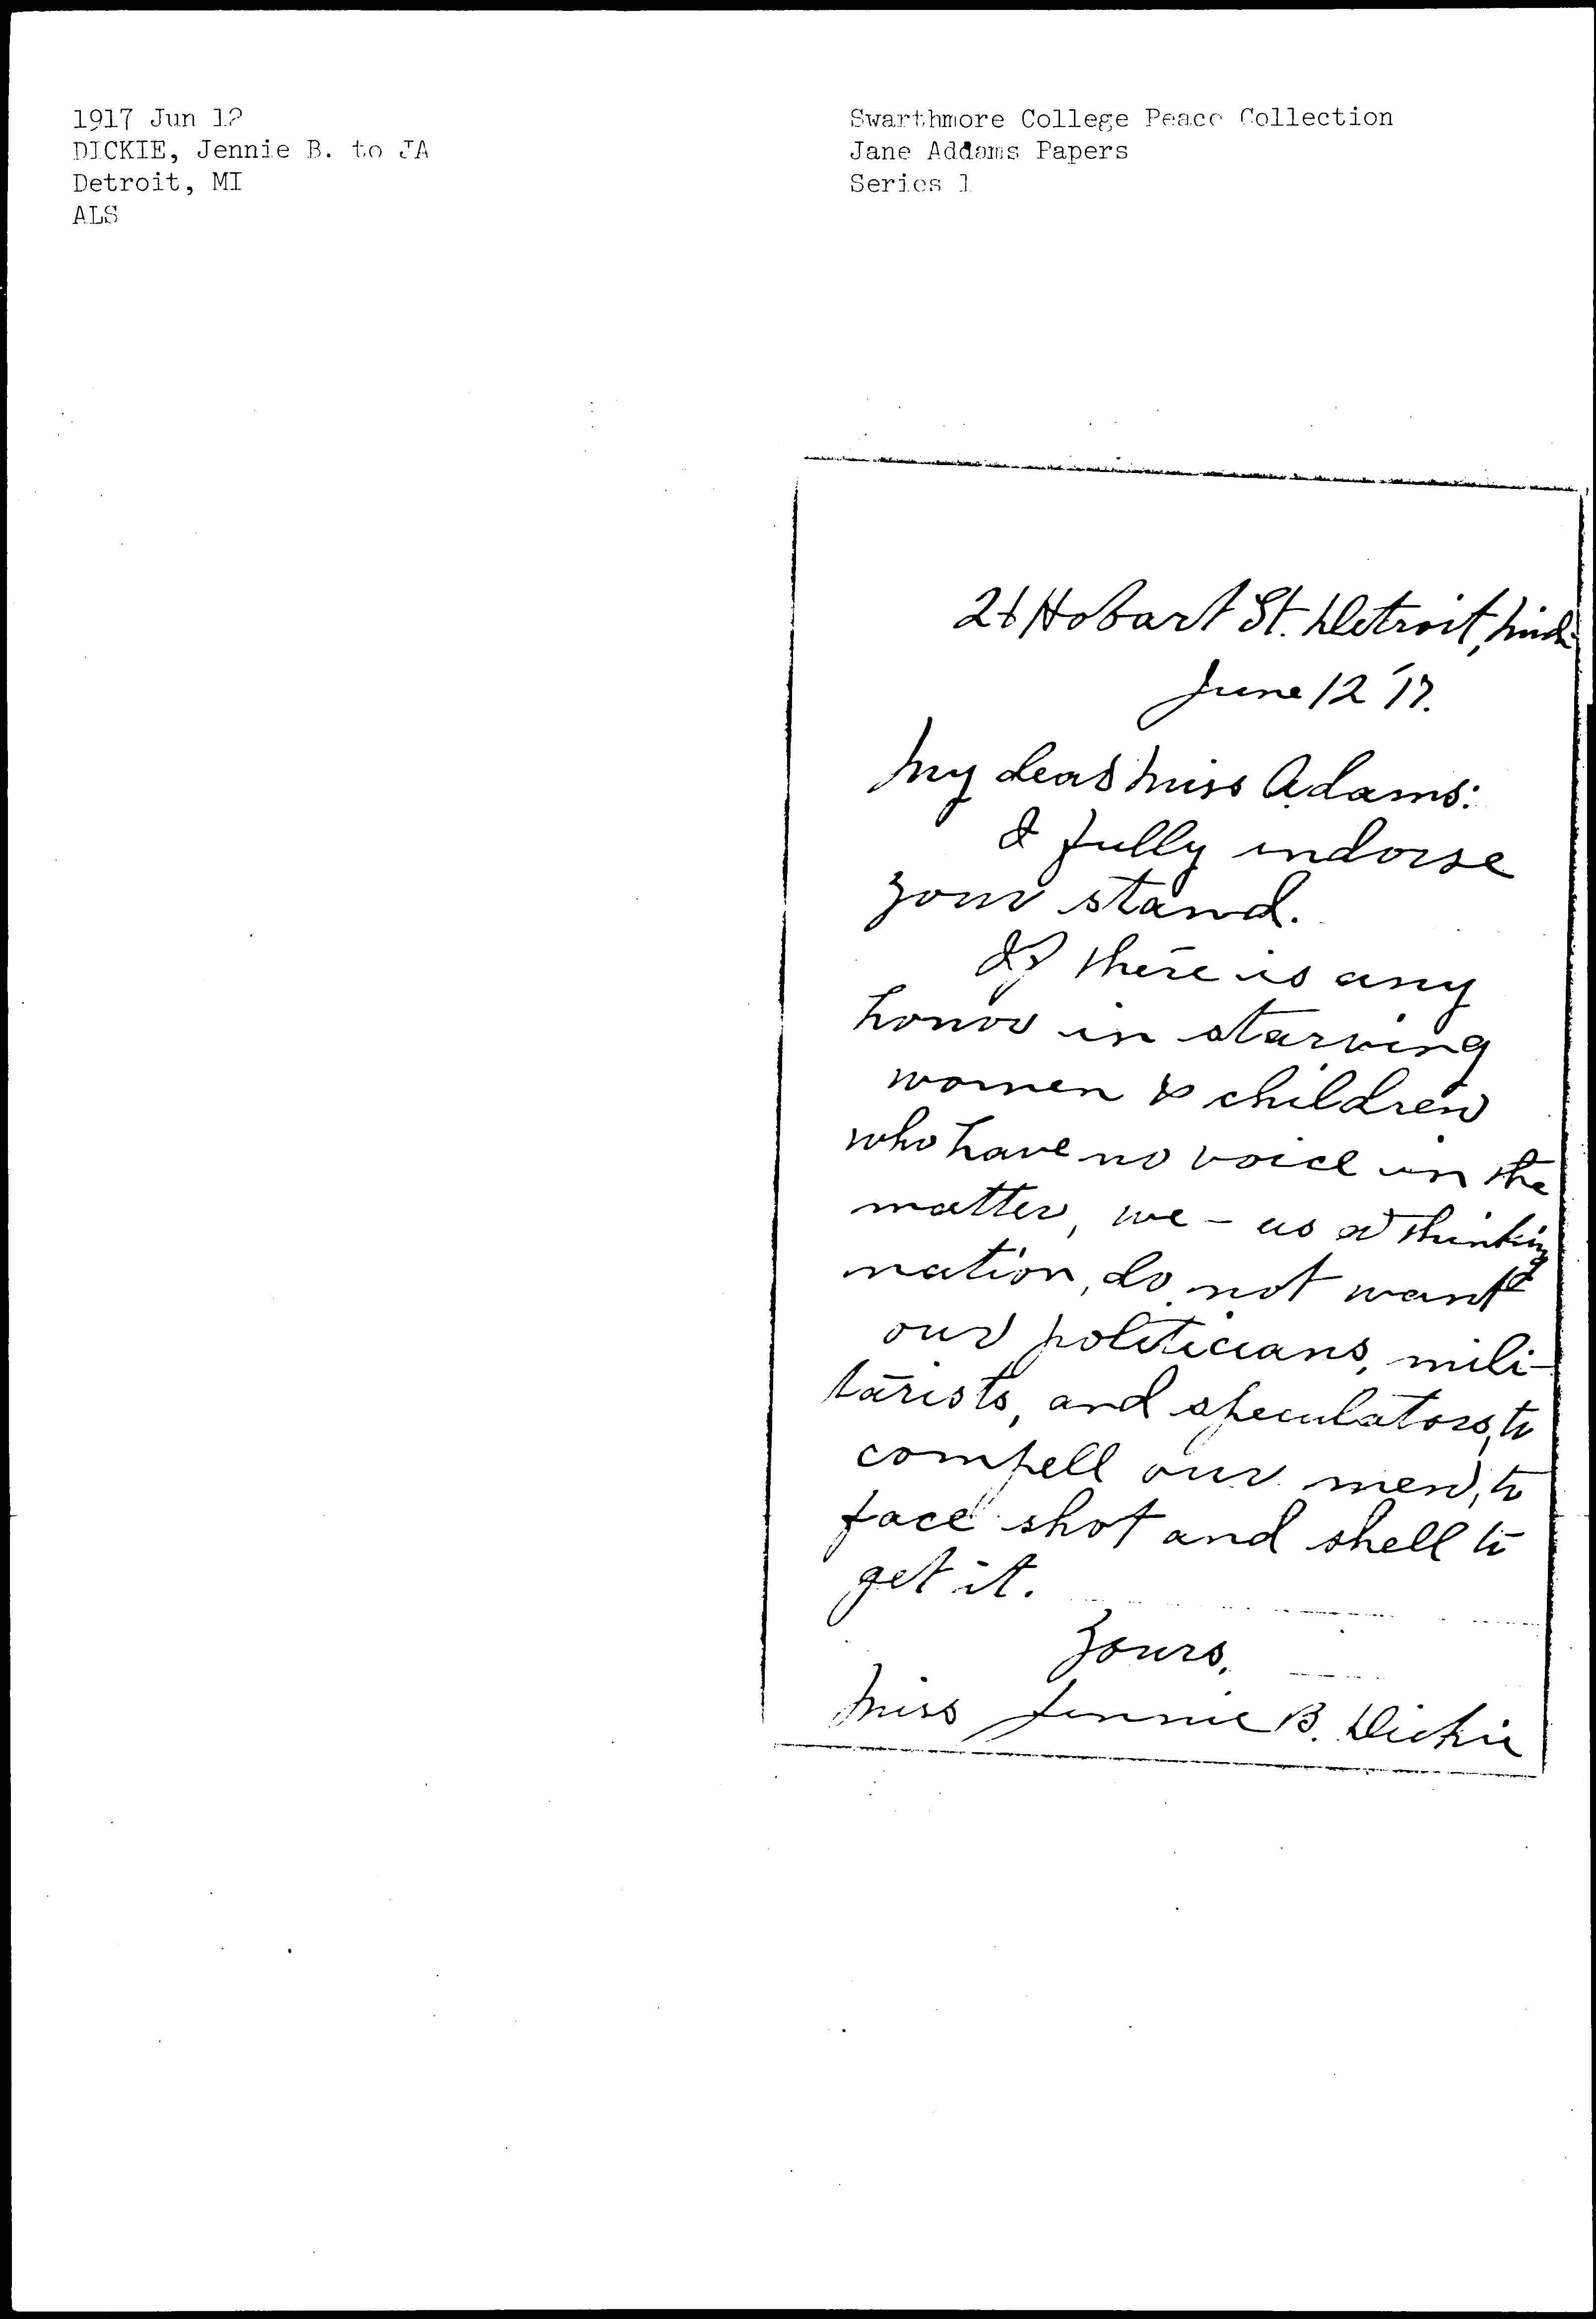 1917 Jun 12
DICKIE, Jennie B. to JA
Detroit, MI
ALS
Swarthmore College Peace Collection
Jane Addams Papers
Series 1
Hobart St. Detroit, Mich
June 12 '17.
My dear Miss Adams:
I fully indorse
your stand.
If there is any
honor in starving
women & children
who have no voice in the
matter, we - as a thinking
nation, do not want
our politicians, mili-
tarists, and speculators, to
compell our men, to
face shot and shell to
get it.
Yours,
Miss Jennie B. Dickie